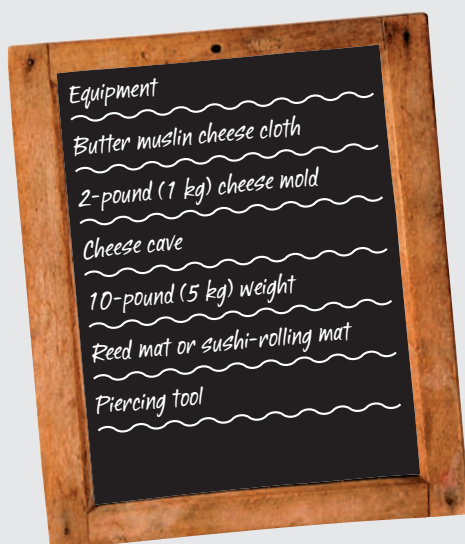 Equipment
Butter muslin cheese cloth
2-pound (1 kg) cheese mold
Cheese cave
10-pound (5 kg) weight
Reed mat or sushi-rolling mat
Piercing tool